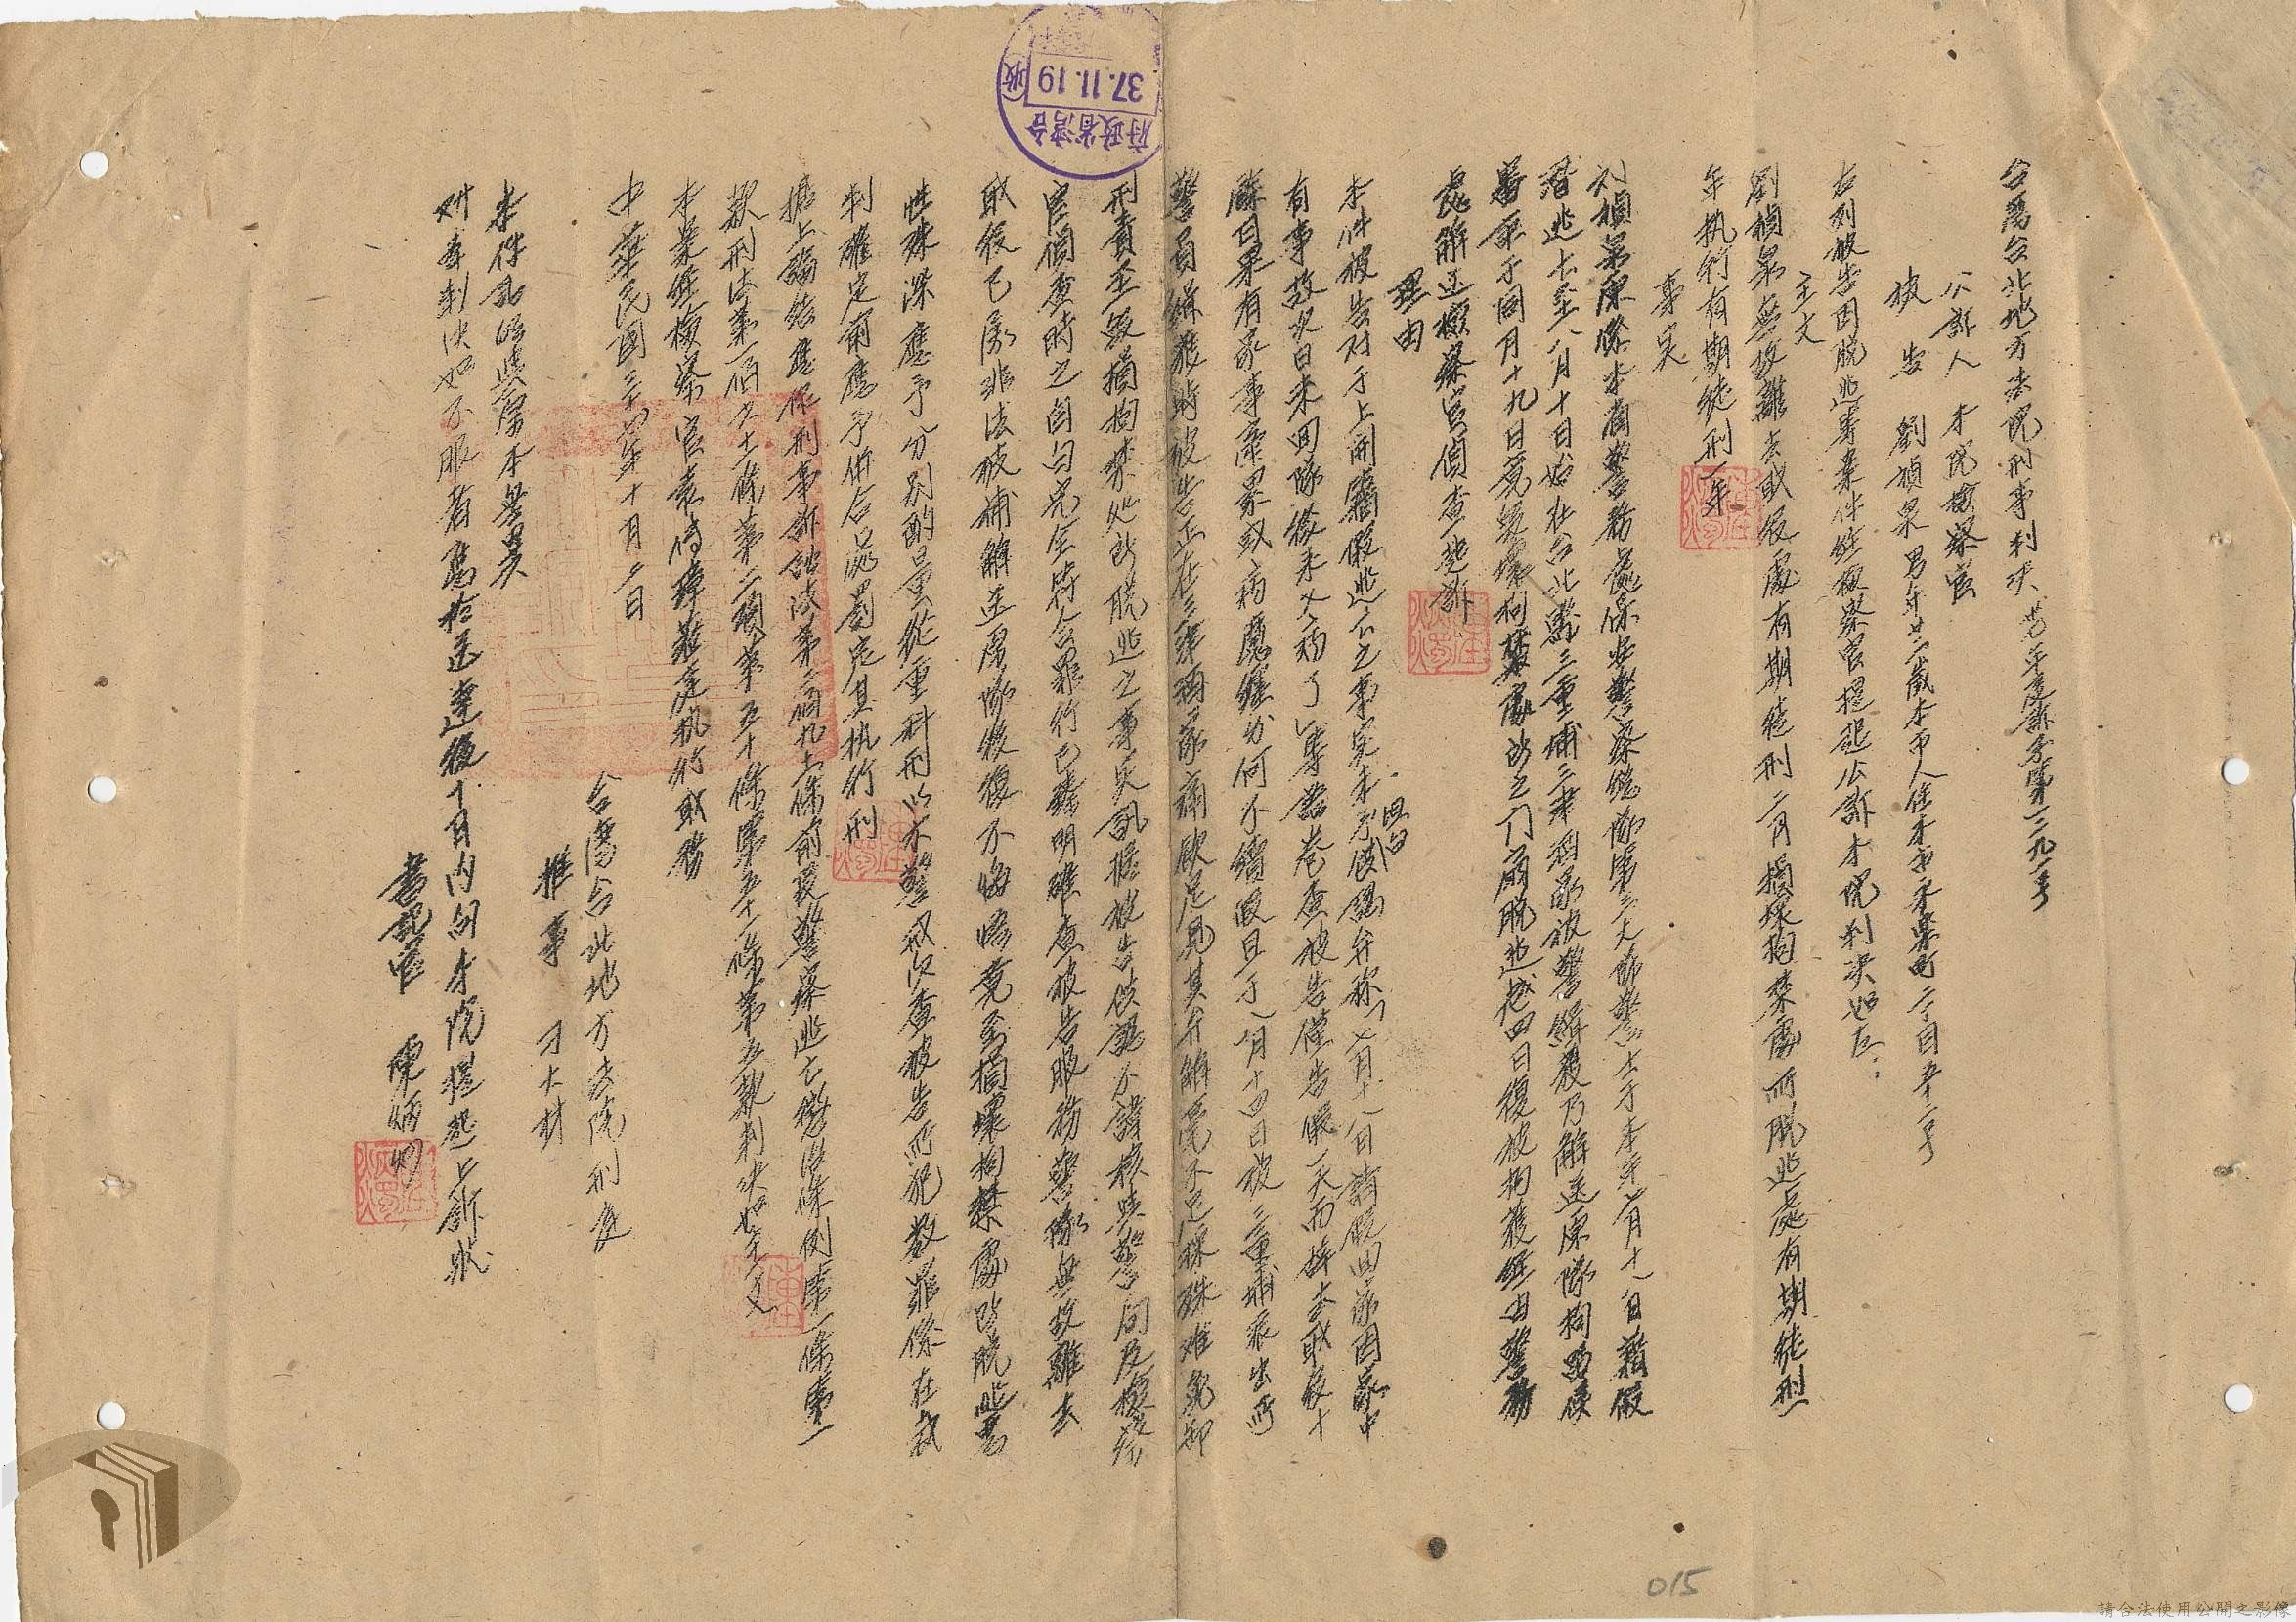 台灣台北地方法院刑事判決 卅七年度訴字第一二九一号
公訴人 本院檢察官
被 告 劉禎杲 男年廿二歲本市人住本市永樂町二丁目五十二号
右列被告因脫逃等案件經檢察官提起公訴本院判決如左：
主文
劉禎杲無故離去职役處有期徒刑二月損壞拘禁處所脫逃處有期徒刑一
年执行有期徒刑一年
事实
刘禎杲原係本省警務處保安警察總隊第三大隊警士于本年七月十八日藉假
潛逃亡至八月十日始在台北縣三重埔三聿酒家被警緝獲乃解送原隊拘留候
辦乘于同月十九日竟毀壞拘禁處所之门扇脫逃越四日復被拘獲經由警務
處解送檢察官偵查起訴
理由
本件被告对于上開藉假逃亡之事实坦白供認并称「七月十八日請假回家因家中
有事故次日未回隊後来又病了」等語卷查被告僅告假一天而擅去职役十
餘日果有家事牽累或病魔纏身何不續假且于八月十四日被三重埔派出所
警員緝獲時被告正在三聿酒家痛飲足見其弁解屬不足採殊难免卸
刑責至毀損拘禁处所脫逃之事实訊據被告供認不諱核與警局及檢察
官偵查時之自白完全符合罪行已臻明確查被告服務警隊無故離去
职役已屬非法被捕解送原隊後復不悔悟竟至損壞拘禁處所脫逃惡
性殊深應予分別酌量從重科刑以示警戒次查被告所犯数罪係在裁
判確定前應予併合處罰定其执行刑
據上論結應依刑事訴訟法第二百九十一條前段警察逃亡懲治條例第一條第一
款刑法第一百六十一條第二項第五十條第五十一條第五款判決如主文
本案經檢察官袁傳璋蒞庭执行职務
中華民國三十七年十月二日
台灣台北地方法院刑庭
推事 刁大材
本件証明與原本無異
对本判決如不服者應於送達後十日内向本院提起上訴状
書記官 陳炳
台灣省政府
37.11.19
收
015
請合法使用公開之影像